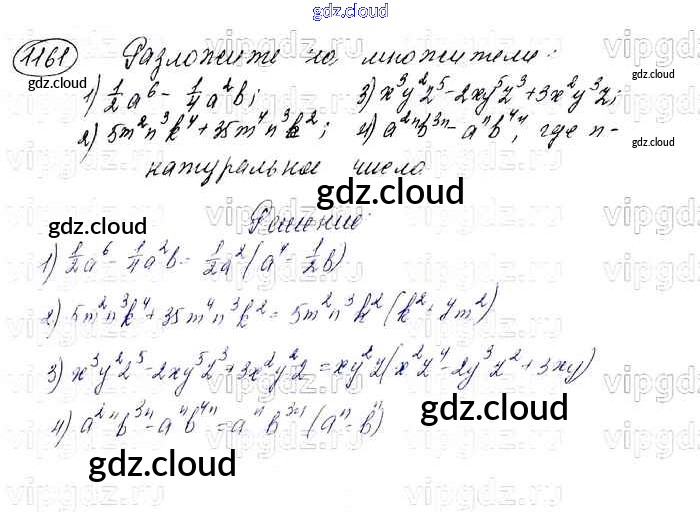 gdz.cloud
1161 Разложите на множители:
1) 1/2 a⁶ - 1/4 a²b; 3) x³y²z⁵ - 2xy⁵z³ + 3x²y³z;
2) 5m²n³k⁴ + 35m⁴n³k²; 4) a²ⁿb³ⁿ - aⁿb⁴ⁿ, где n -
натуральное число
gdz.cloud
Решение:
1) 1/2 a⁶ - 1/4 a²b = 1/2 a² (a⁴ - 1/2 b)
2) 5m²n³k⁴ + 35m⁴n³k² = 5m²n³k² (k² + 7m²)
3) x³y²z⁵ - 2xy⁵z³ + 3x²y²z = xy²z (x²z⁴ - 2y³z² + 3xy)
4) a²ⁿb³ⁿ - aⁿb⁴ⁿ = aⁿb³ⁿ (aⁿ - bⁿ)
gdz.cloud